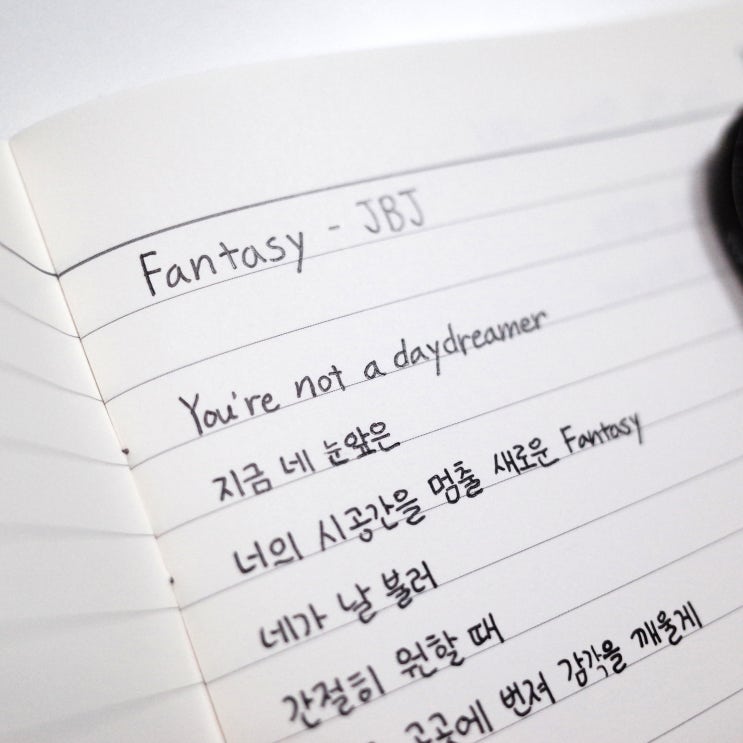 Fantasy - JBJ
You're not a daydreamer
지금 네 눈앞은
너의 시공간을 멈출 새로운 Fantasy
네가 날 불러
간절히 원할 때
곳곳에 번져 감각을 깨울게